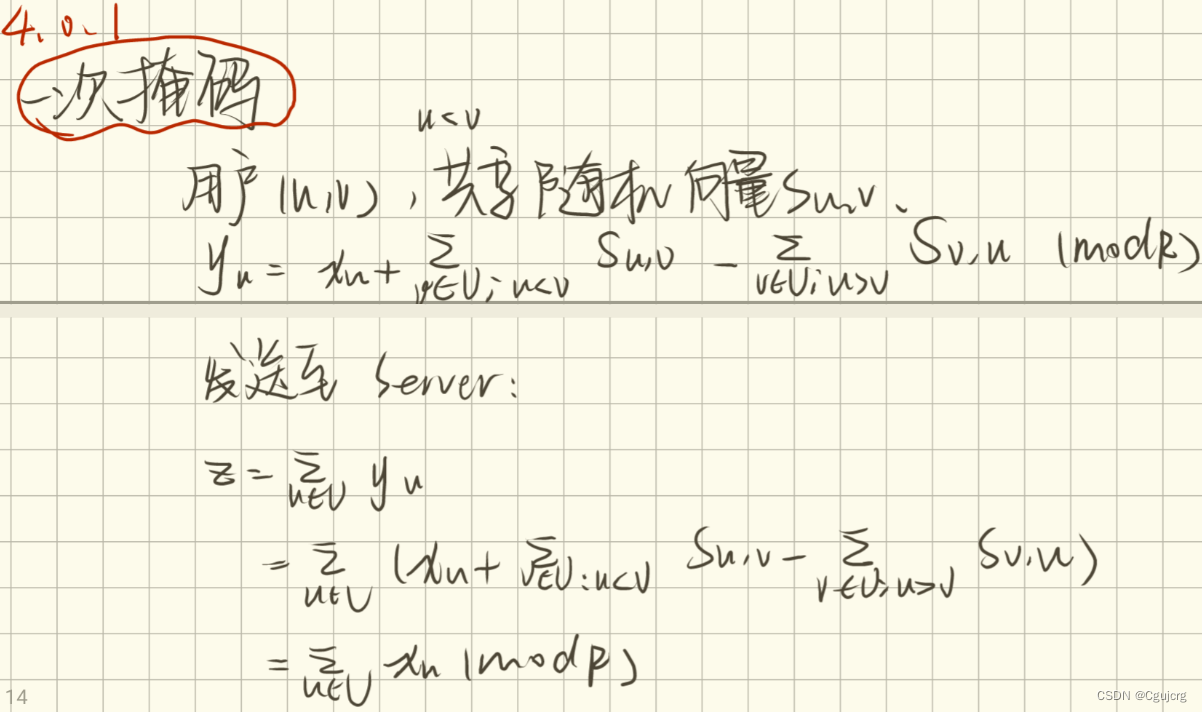 4.0.1
一次掩码
u<v
用户(u,v), 共享随机向量Su,v、
yu = xu + Σ v∈U; u<v Su,v - Σ v∈U; u>v Sv,u (mod R)
发送至 Server:
z = Σ u∈U yu
= Σ u∈U (xu + Σ v∈U: u<v Su,v - Σ v∈U; u>v Sv,u)
= Σ u∈U xu (mod R)
14
CSDN @Cgujcrg